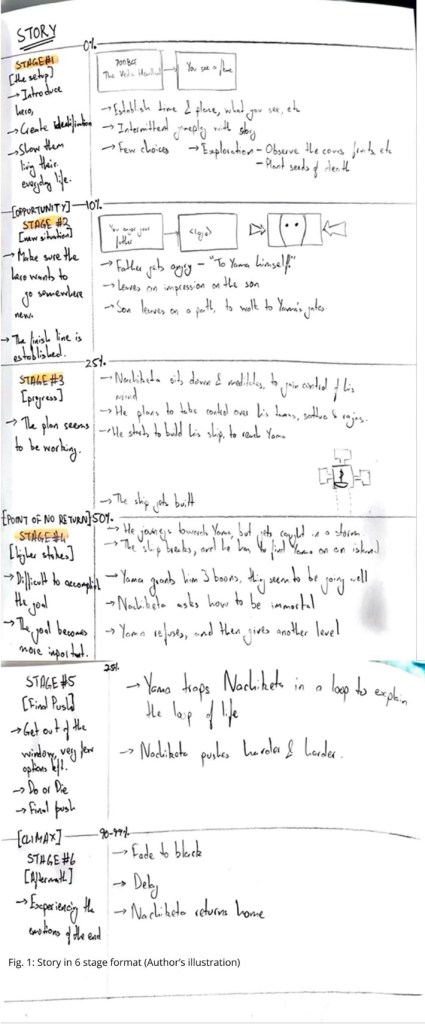 STORY
0%
STAGE #1
[the setup]
→ Introduce hero,
→ Create identification
→ Show them living their everyday life.
You see a
→ Establish time & place, what you see, etc
→ Intermittent gameplay with story
→ Few choices → Exploration - Observe the cows, fruits etc
- Plant seeds of death
[OPPURTUNITY] 10%
STAGE #2
[new situation]
→ Make sure the hero wants to go somewhere new.
→ The finish line is established.
You anger your father
<logo>
→ Father gets angry - "To Yama himself!"
→ Leaves an impression on the son
→ Son leaves on a path, to walk to Yama's gates
25%
STAGE #3
[progress]
→ The plan seems to be working.
→ Nachiketa sits down & meditates, to gain control of his mind
→ He plans to take control over his tamas, sattva & rajas.
→ He starts to build his ship, to reach Yama
→ The ship gets built
[POINT OF NO RETURN] 50%
STAGE #4
[higher stakes]
→ Difficult to accomplish the goal
→ The goal becomes more important.
→ He journeys towards Yama, but gets caught in a storm
→ The ship breaks, and he has to find Yama on an island
→ Yama grants him 3 boons, thing seem to be going well
→ Nachiketa asks how to be immortal
→ Yama refuses, and then gives another level
STAGE #5
[Final Push]
→ Get out of the window, very few options left.
→ Do or Die
→ Final push
→ Yama traps Nachiketa in a loop to explain the loop of life
→ Nachiketa pushes harder & harder.
[CLIMAX] 90-99%
STAGE #6
[Aftermath]
→ Experiencing the emotions of the end
→ Fade to black
→ Delay
→ Nachiketa returns home
Fig. 1: Story in 6 stage format (Author's illustration)